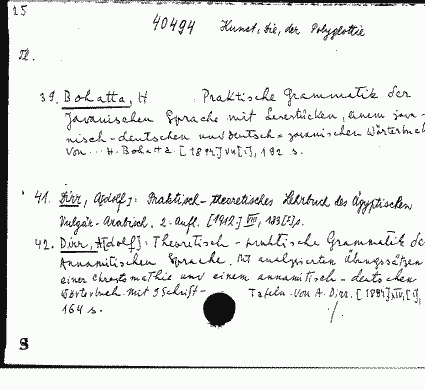 25
40494 Kunst, die, der Polyglottie
II.
39. Bohatta, H Praktische Grammatik der
Javanischen Sprache mit Lesestücken, einem java-
nisch-deutschen und deutsch-javanischen Wörterbuch
von ... H. Bohatta. [1892] 192 s.
41. Dirr, A[dolf]: Praktisch-theoretisches Lehrbuch des Ägyptischen
Vulgär-Arabisch. 2. Aufl. [1912] VIII,
42. Dirr, A[dolf]: Theoretisch-praktische Grammatik de
Annamitischen Sprache. Mit analysierten Übungssätzen
einer Chrestomathie und einem annamitisch-deutschen
Wörterbuch mit 3 Schrift- Tafeln. Von A. Dirr. [1894] XIV,
164 s.
8